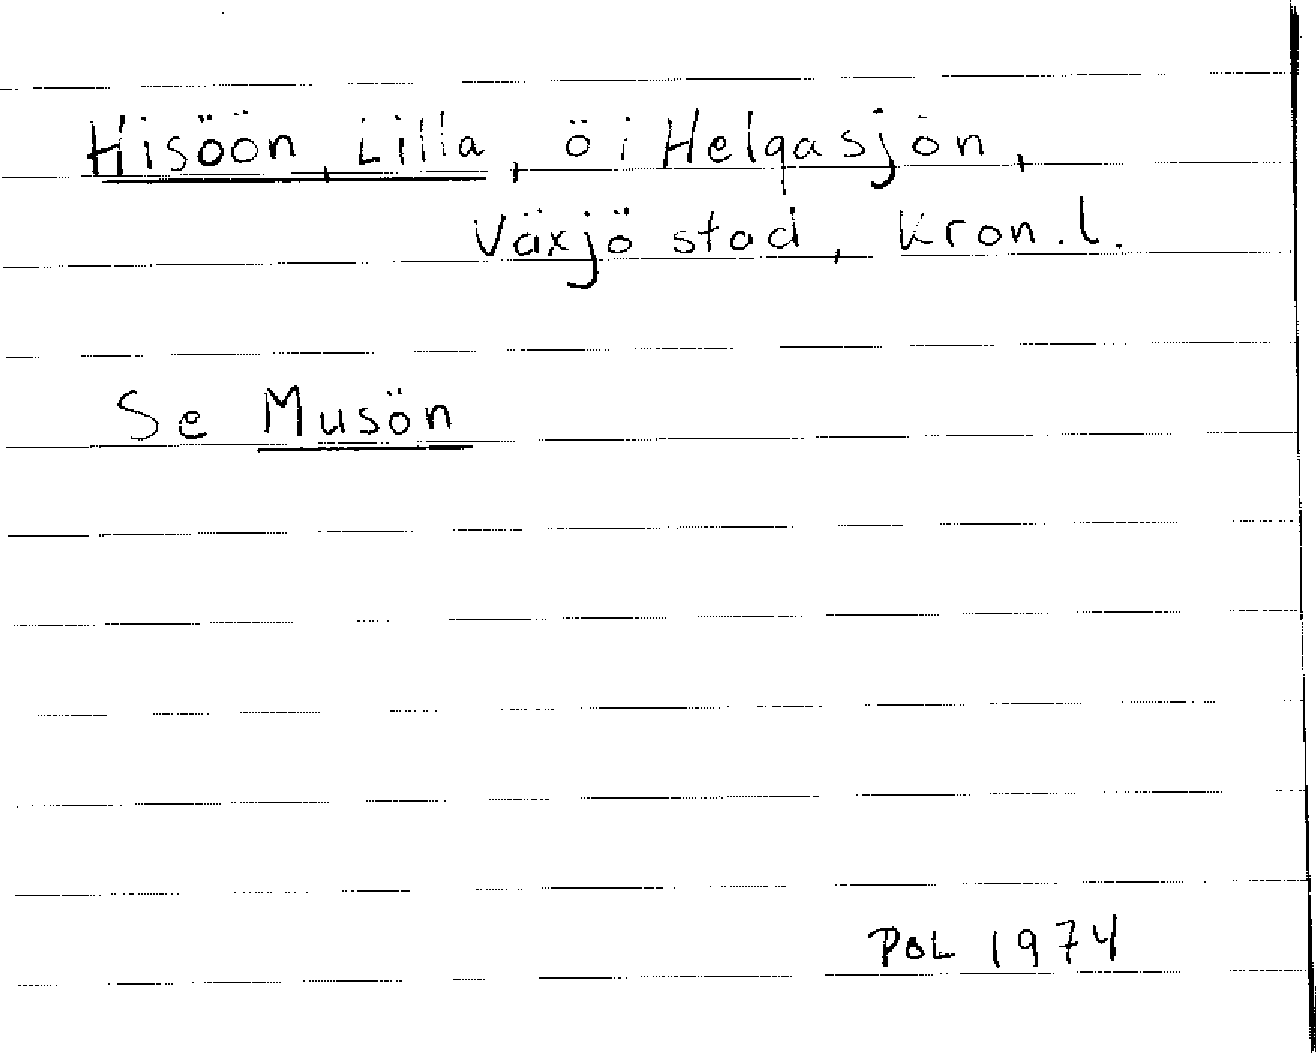 Hisöön, Lilla, ö i Helgasjön,
Växjö stad, Kron.l.
Se Musön
POL 1974